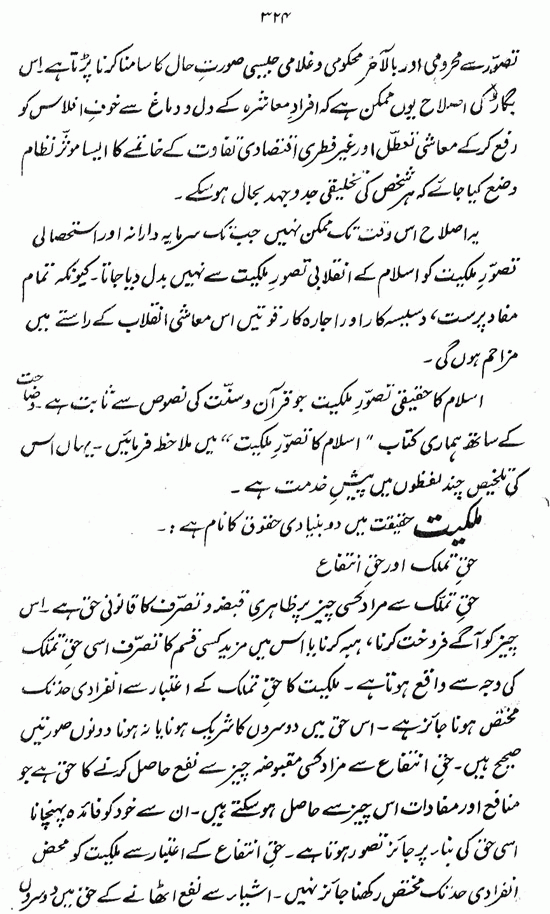 ۳۲۴
تصوّر سے محرومی اور بالآخر محکومی و غلامی جیسی صورتِ حال کا سامنا کرنا پڑتا ہے۔ اس
بگاڑ کی اصلاح یوں ممکن ہے کہ افرادِ معاشرہ کے دل و دماغ سے خوفِ افلاس کو
رفع کر کے معاشی تعطّل اور غیر فطری اقتصادی تفاوت کے خاتمے کا ایسا موثر نظام
وضع کیا جائے کہ ہر شخص کی تخلیقی جدوجہد بحال ہو سکے۔
یہ اصلاح اس وقت تک ممکن نہیں جب تک سرمایہ دارانہ اور استحصالی
تصوّرِ ملکیت کو اسلام کے انقلابی تصورِ ملکیت سے نہیں بدل دیا جاتا۔ کیونکہ تمام
مفاد پرست، دسیسہ کار اور اجارہ کار قوتیں اس معاشی انقلاب کے راستے میں
مزاحم ہوں گی۔
اسلام کا حقیقی تصوّرِ ملکیت جو قرآن و سنّت کی نصوص سے ثابت ہے۔ وضاحت
کے ساتھ ہماری کتاب "اسلام کا تصوّرِ ملکیت" میں ملاحظہ فرمائیں۔ یہاں اس
کی تلخیص چند لفظوں میں پیشِ خدمت ہے۔
ملکیت حقیقت میں دو بنیادی حقوق کا نام ہے :۔
حقِ تملک اور حقِ انتفاع
حقِ تملّک سے مراد کسی چیز پر ظاہری قبضہ و تصرّف کا قانونی حق ہے۔ اس
چیز کو آگے فروخت کرنا، ہبہ کرنا یا اس میں مزید کسی قسم کا تصرّف اسی حقِ تملّک
کی وجہ سے واقع ہوتا ہے۔ ملکیت کا حقِ تملک کے اعتبار سے انفرادی حد تک
مختص ہونا جائز ہے۔ اس حق میں دوسروں کا شریک ہونا یا نہ ہونا دونوں صورتیں
صحیح ہیں۔ حقِ انتفاع سے مراد کسی مقبوضہ چیز سے نفع حاصل کرنے کا حق ہے جو
منافع اور مفادات اس چیز سے حاصل ہو سکتے ہیں۔ ان سے خود کو فائدہ پہنچانا
اسی حق کی بناء پر جائز تصور ہوتا ہے۔ حقِ انتفاع کے اعتبار سے ملکیت کو محض
انفرادی حد تک مختص رکھنا جائز نہیں۔ اشیاء سے نفع اٹھانے کے حق میں دوسروں